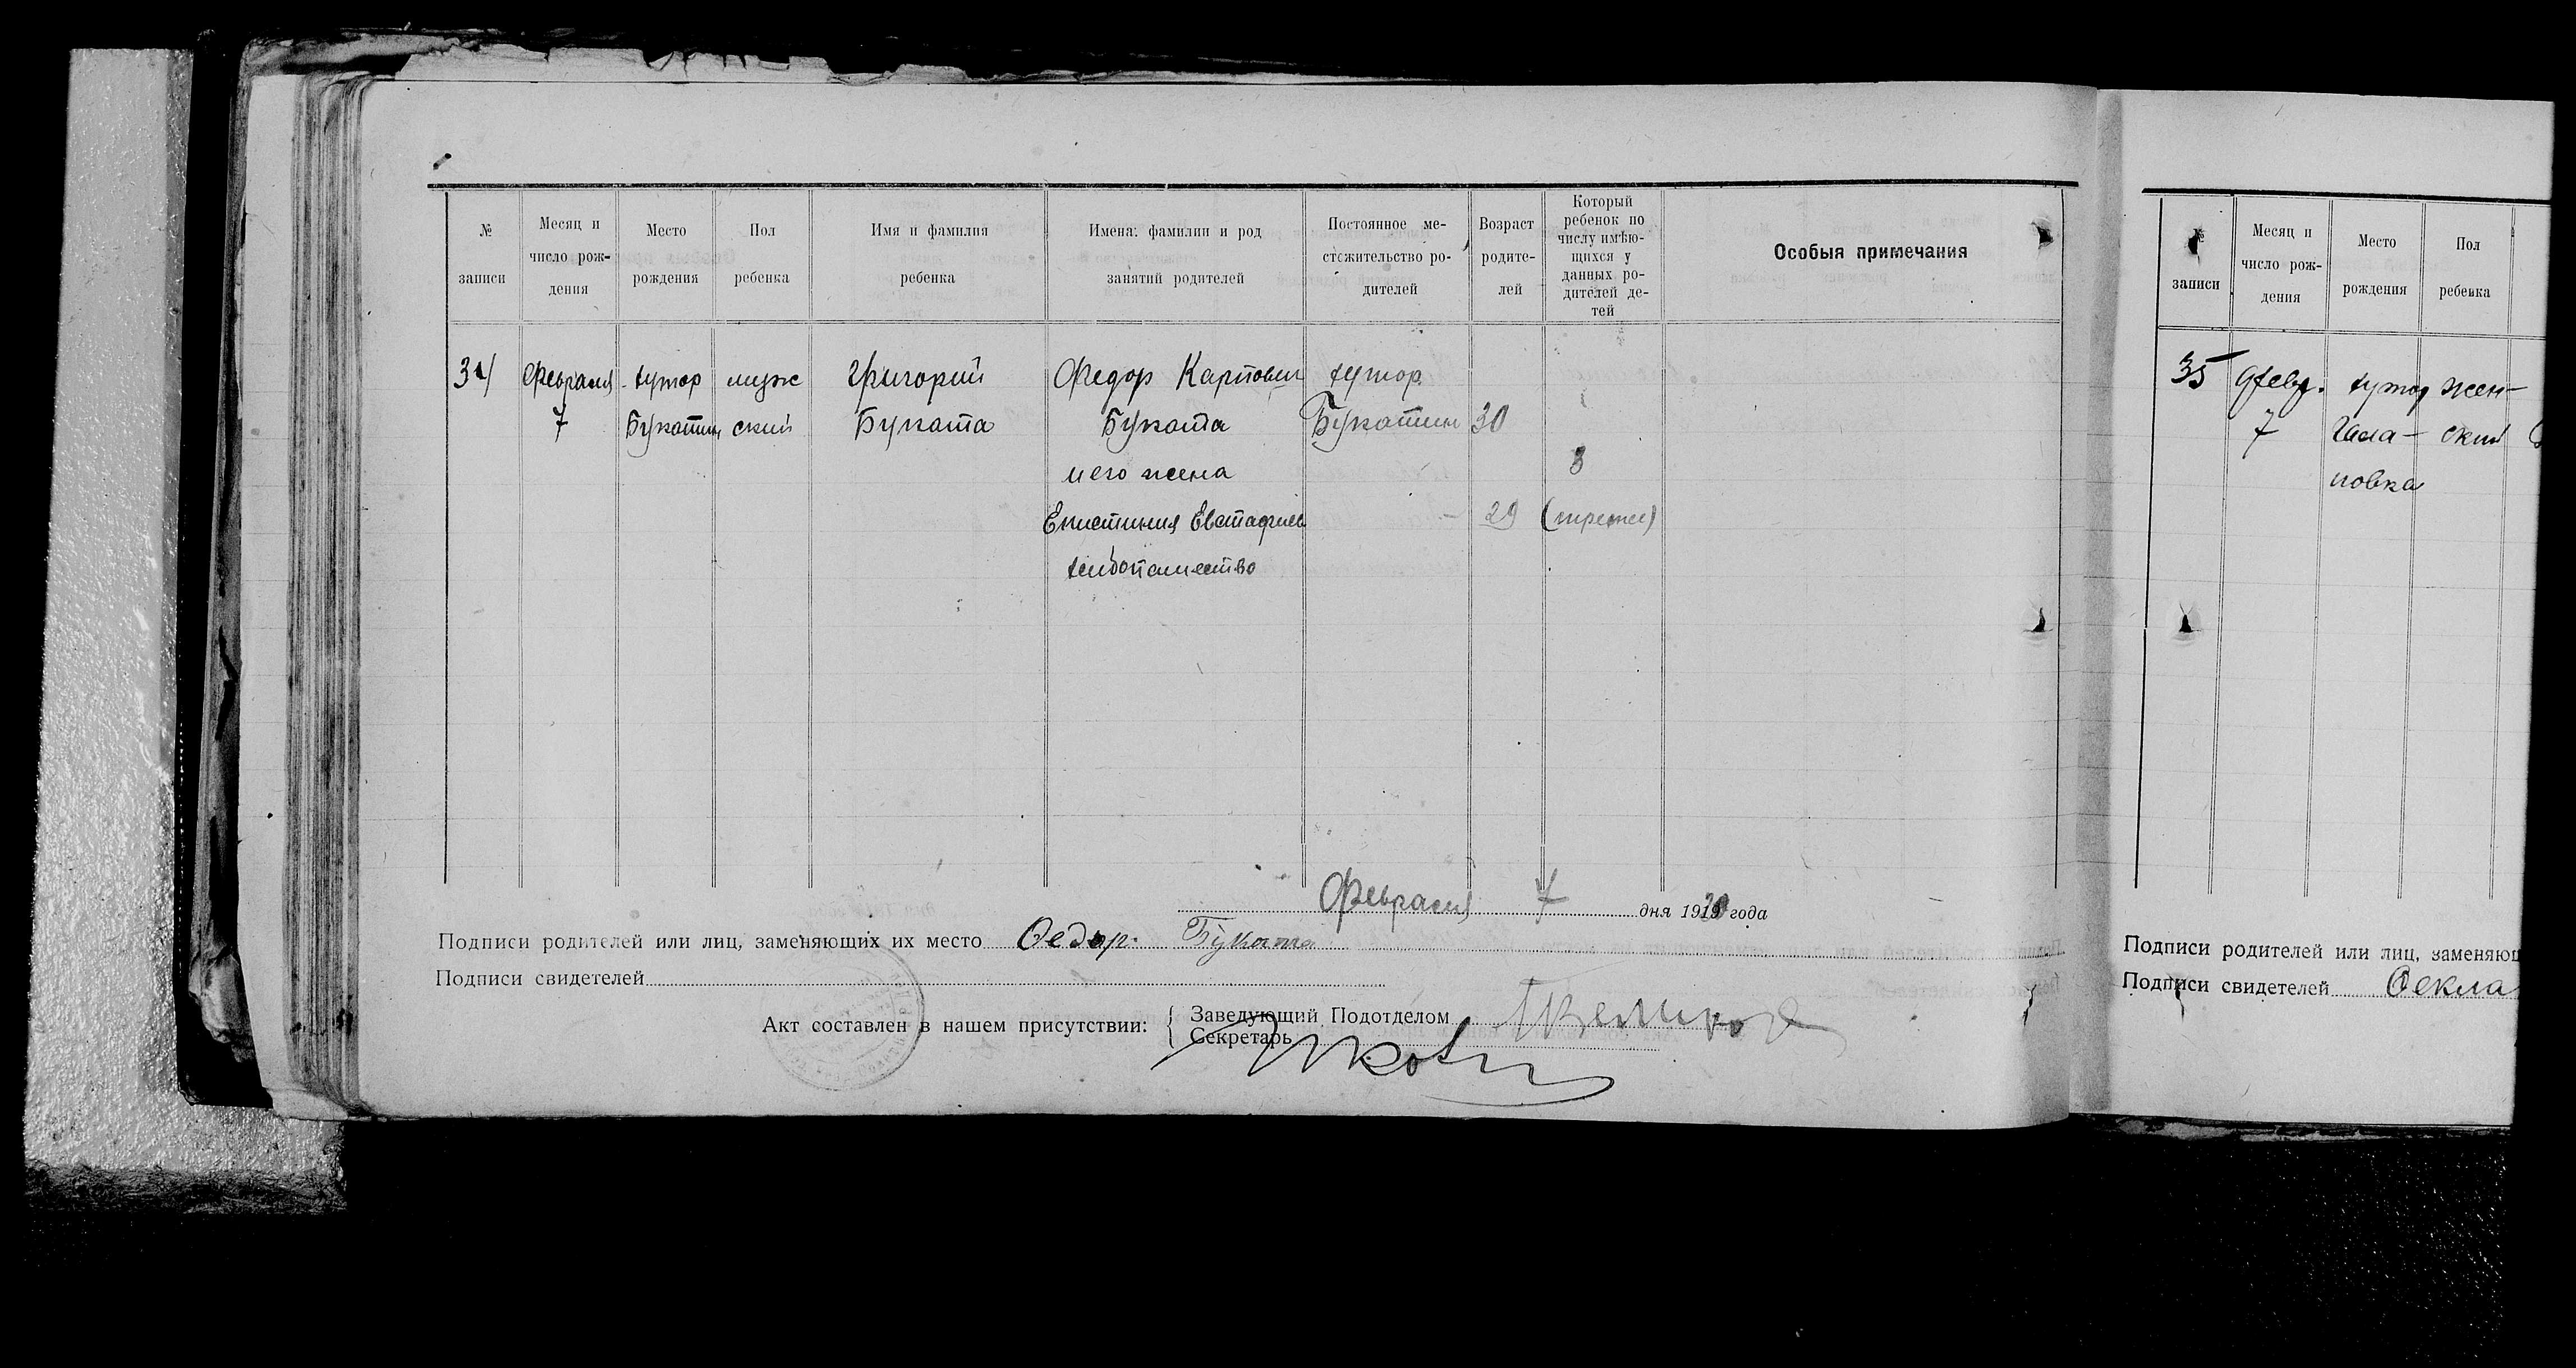 № записи
Месяц и число рождения
Место рождения
Пол ребенка
Имя и фамилия ребенка
Имена: фамилии и род занятий родителей
Постоянное местожительство родителей
Возраст родителей
Который ребенок по числу имѣющихся у данных родителей детей
Особыя примечания
34 Февраля хутор муж Григорий Федор Карпович хутор
7 Букатин ский Буката Буката Букатин 30
и его жена 3
Епистиния Евстафиев 29 (третий)
хлебопашество
Февраля 7 дня 1920 года
Подписи родителей или лиц, заменяющих их место Федор Буката
Подписи свидетелей
Акт составлен в нашем присутствии: Заведующий Подотделом
Секретарь
№ записи
Месяц и число рождения
Место рождения
Пол ребенка
35 Февр. хутор жен-
7 Гала- ский
новка
Подписи родителей или лиц, заменяющ
Подписи свидетелей Фекла